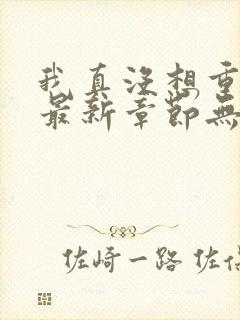 我真沒想重
最新章節無
佐崎一路 佐佐